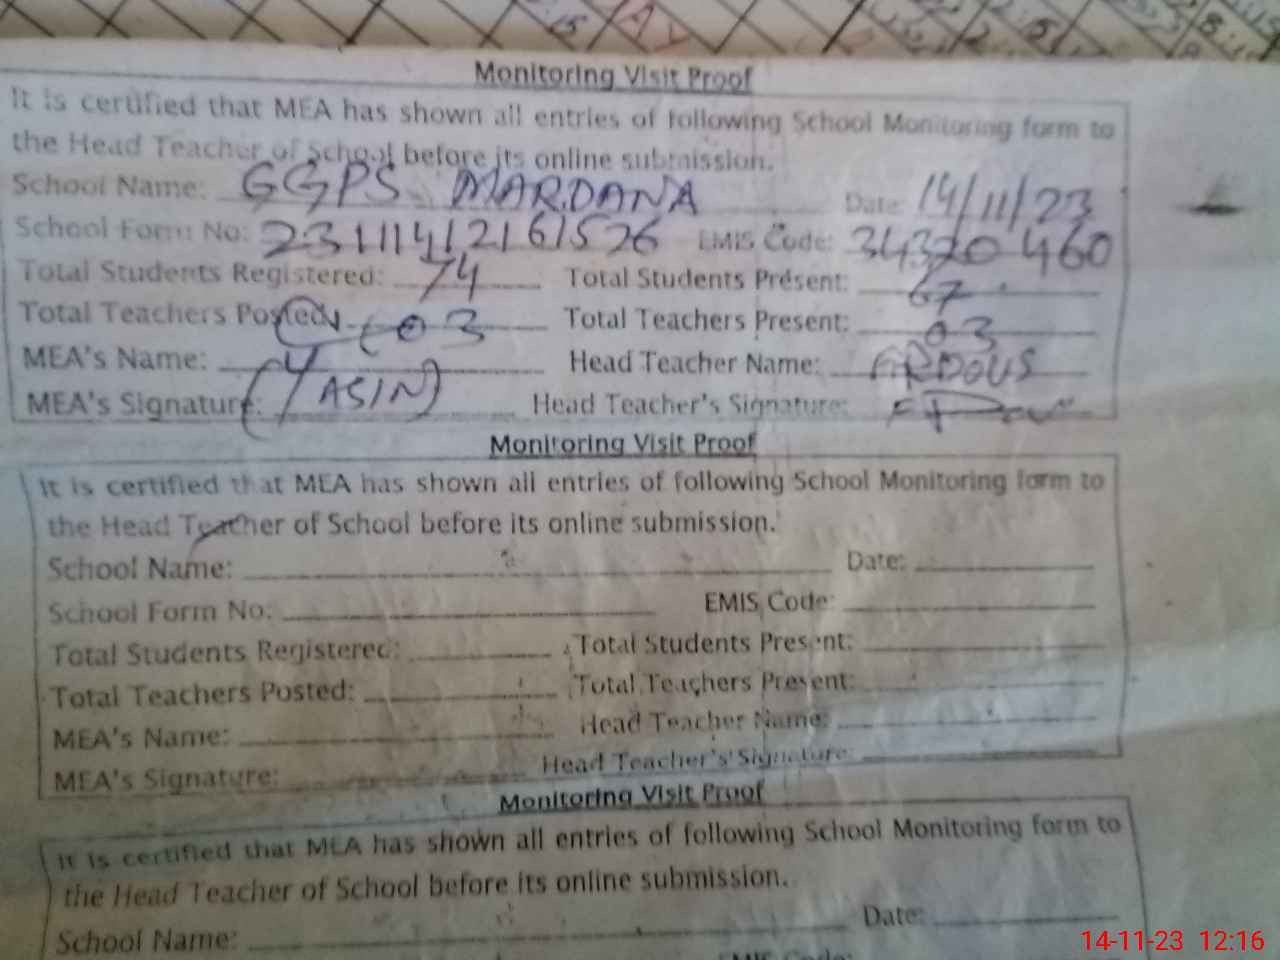 Monitoring Visit Proof
It is certified that MEA has shown all entries of following School Monitoring form to
the Head Teacher of School before its online submission.
School Name: GGPS MARDANA Date: 14/11/23
School Form No: 23111412161526 EMIS Code: 34320460
Total Students Registered: 74 Total Students Present: 67
Total Teachers Posted: 03 Total Teachers Present: 03
MEA's Name: Head Teacher Name: FIRDOUS
MEA's Signature: (YASIN) Head Teacher's Signature:
Monitoring Visit Proof
It is certified that MEA has shown all entries of following School Monitoring form to
the Head Teacher of School before its online submission.
School Name: Date:
School Form No: EMIS Code:
Total Students Registered: Total Students Present:
Total Teachers Posted: Total Teachers Present:
MEA's Name: Head Teacher Name:
MEA's Signature: Head Teacher's Signature:
Monitoring Visit Proof
It is certified that MEA has shown all entries of following School Monitoring form to
the Head Teacher of School before its online submission.
School Name: Date:
EMIS Code:
14-11-23 12:16